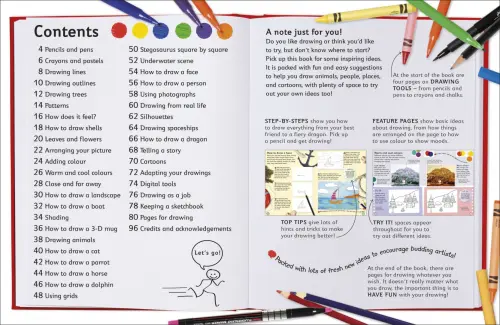 Contents
4 Pencils and pens
6 Crayons and pastels
8 Drawing lines
10 Drawing outlines
12 Drawing trees
14 Patterns
16 How does it feel?
18 How to draw shells
20 Leaves and flowers
22 Arranging your picture
24 Adding colour
26 Warm and cool colours
28 Close and far away
30 How to draw a landscape
32 How to draw a boat
34 Shading
36 How to draw a 3-D mug
38 Drawing animals
40 How to draw a cat
42 How to draw a parrot
44 How to draw a horse
46 How to draw a dolphin
48 Using grids
50 Stegosaurus square by square
52 Underwater scene
54 How to draw a face
56 How to draw a person
58 Using photographs
60 Drawing from real life
62 Silhouettes
64 Drawing spaceships
66 How to draw a dragon
68 Telling a story
70 Cartoons
72 Adapting your drawings
74 Digital tools
76 Drawing as a job
78 Keeping a sketchbook
80 Pages for drawing
96 Credits and acknowledgements
Let's go!
A note just for you!
Do you like drawing or think you'd like
to try, but don't know where to start?
Pick up this book for some inspiring ideas.
It is packed with fun and easy suggestions
to help you draw animals, people, places,
and cartoons, with plenty of space to try
out your own ideas too!
At the start of the book are
four pages on DRAWING
TOOLS – from pencils and
pens to crayons and chalks.
STEP-BY-STEPS show you how
to draw everything from your best
friend to a fiery dragon. Pick up
a pencil and get drawing!
FEATURE PAGES show basic ideas
about drawing, from how things
are arranged on the page to how
to use colour to show moods.
TOP TIPS give lots of
hints and tricks to make
your drawing better!
TRY IT! spaces appear
throughout for you to
try out different ideas.
Packed with lots of fresh new ideas to encourage budding artists!
At the end of the book, there are
pages for drawing whatever you
wish. It doesn't really matter what
you draw, the important thing is to
HAVE FUN with your drawing!